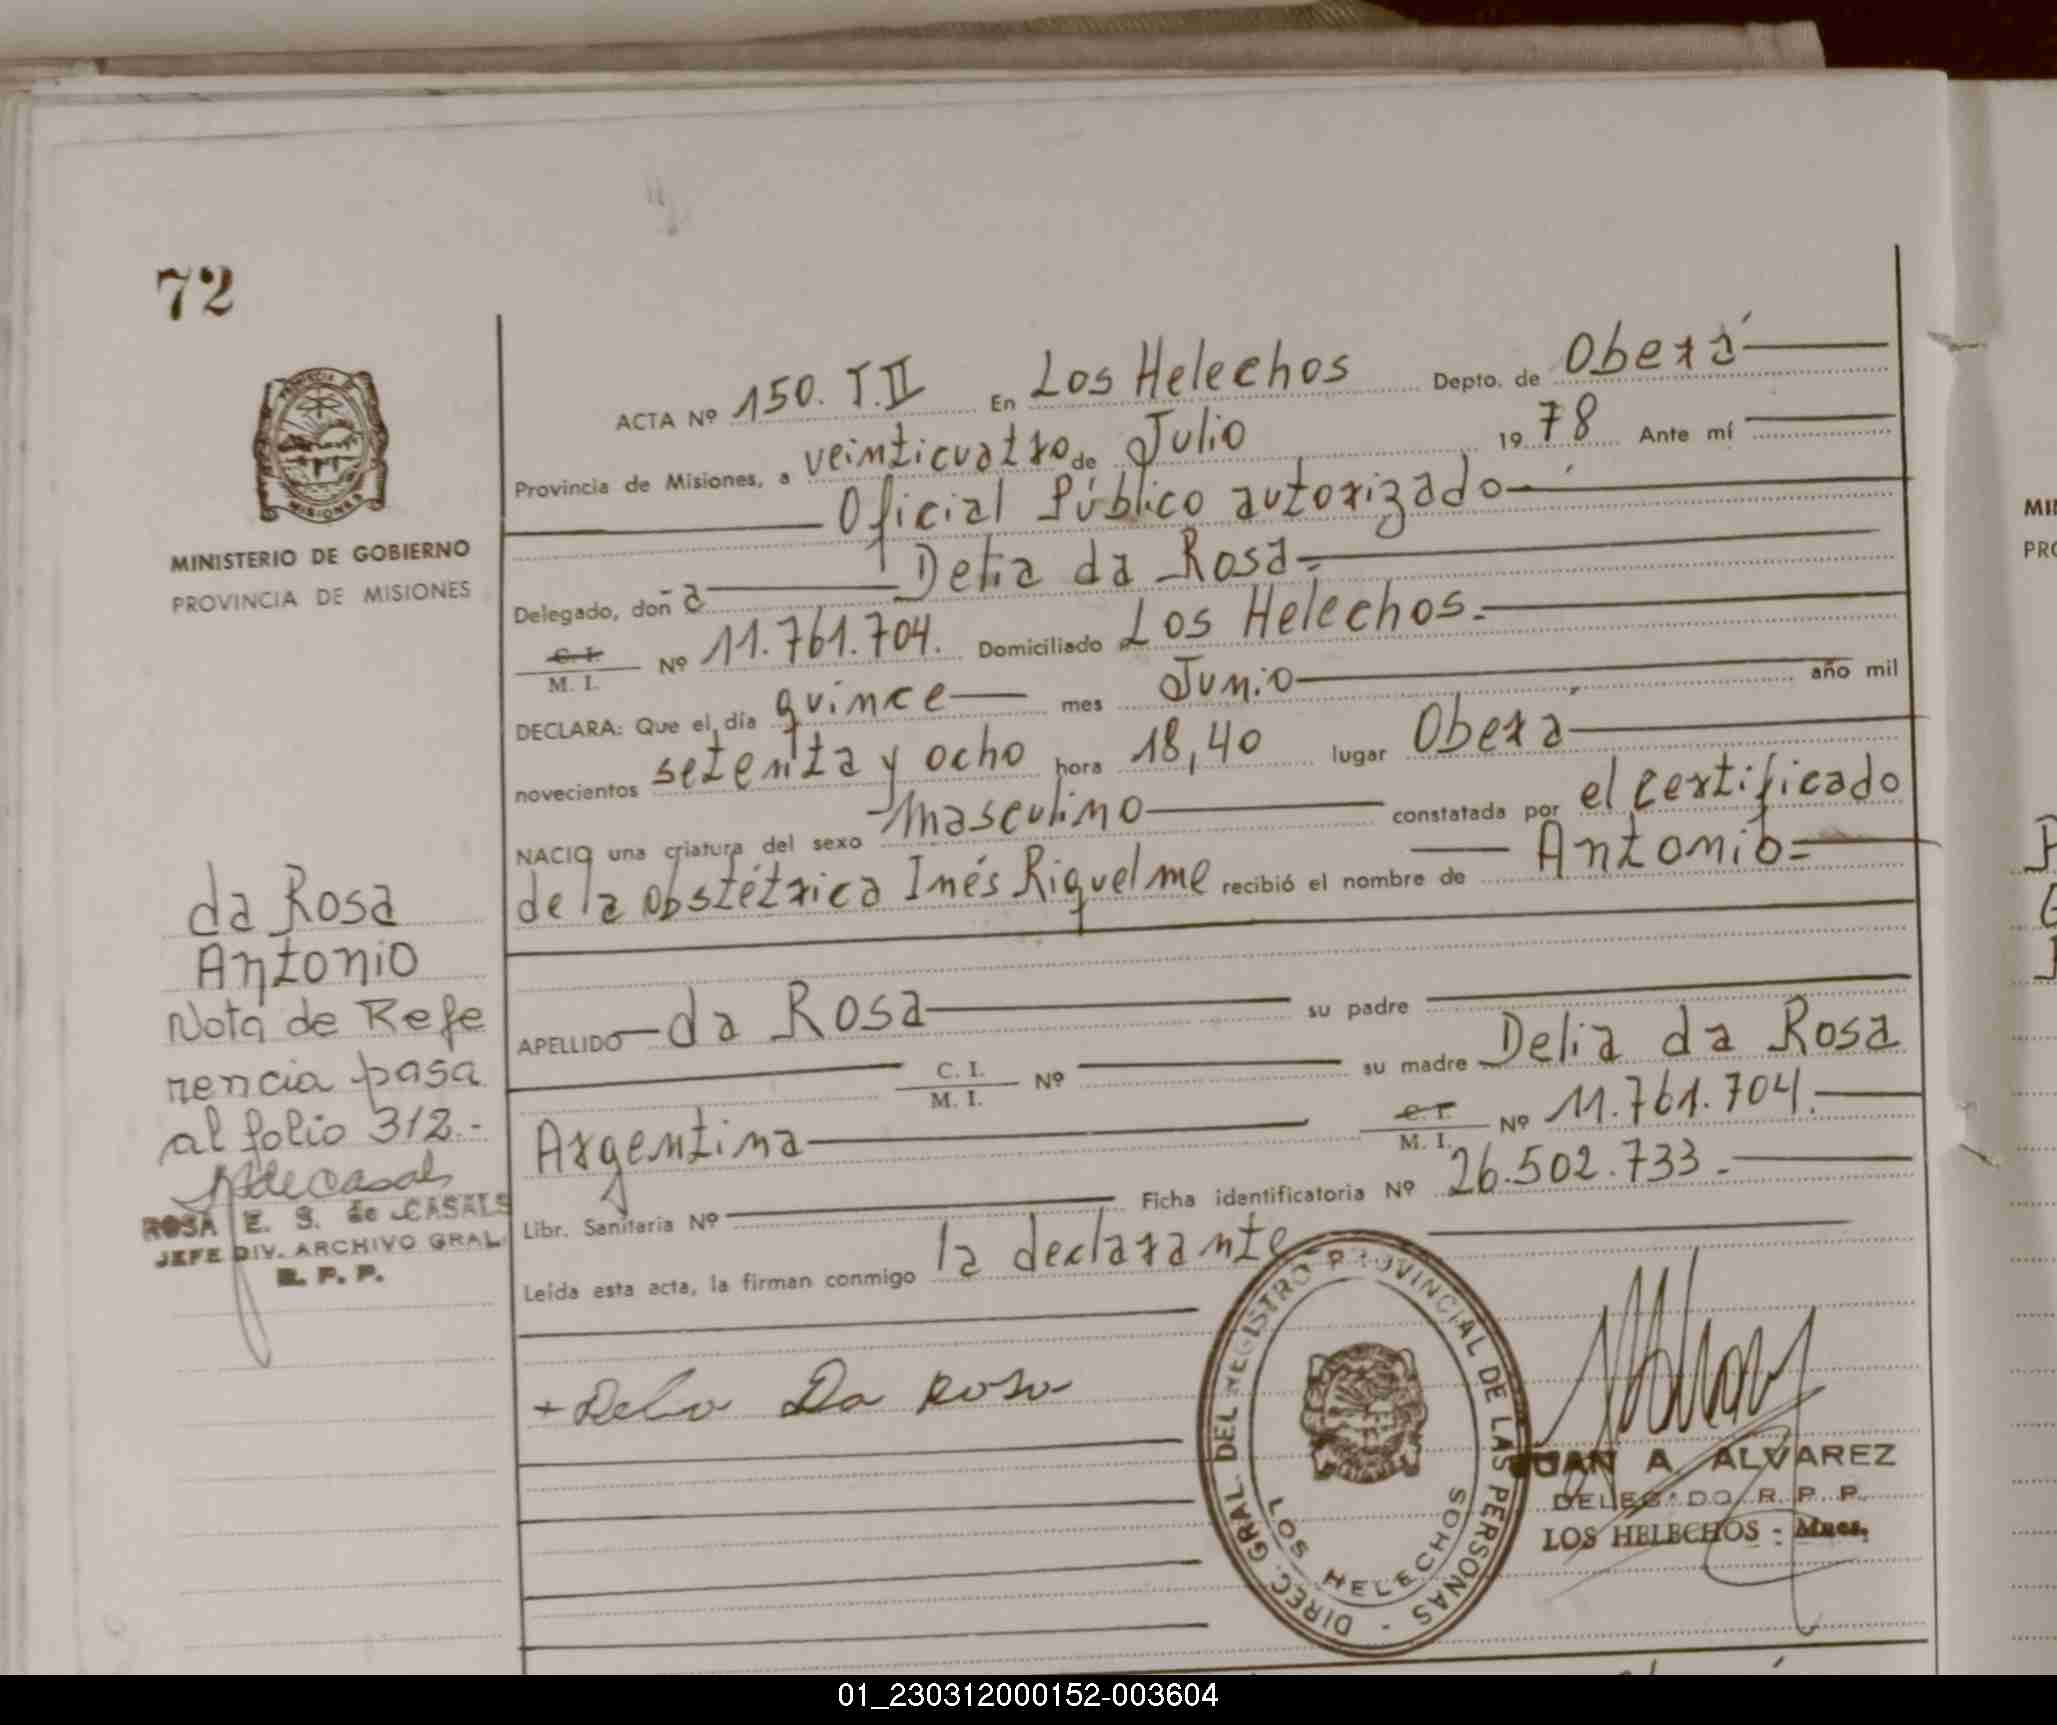 72
PROVINCIA D
MISIONES
MINISTERIO DE GOBIERNO
PROVINCIA DE MISIONES
ACTA Nº 150. T.II En Los Helechos Depto. de Oberá
Provincia de Misiones, a veinticuatro de Julio 19 78 Ante mí
Oficial Público autorizado
Delegado, doñ a Delia da Rosa
C. I. M. I. Nº 11.761.704. Domiciliado Los Helechos.
DECLARA: Que el día quince mes Junio año mil
novecientos setenta y ocho hora 18,40 lugar Oberá
NACIO una criatura del sexo Masculino constatada por el certificado
de la obstétrica Inés Riquelme recibió el nombre de Antonio=
APELLIDO da Rosa su padre
C. I. M. I. Nº su madre Delia da Rosa
Argentina C. I. M. I. Nº 11.761.704.
Libr. Sanitaria Nº Ficha identificatoria Nº 26.502.733.
Leída esta acta, la firman conmigo la declarante
da Rosa
Antonio
Nota de Refe
rencia pasa
al folio 312.-
ROSA E. S. de CASALS
JEFE DIV. ARCHIVO GRAL.
R. P. P.
Da Rosa
DIREC. GRAL. DEL REGISTRO PROVINCIAL DE LAS PERSONAS -
LOS HELECHOS
JUAN A. ALVAREZ
DELEGADO R. P. P.
LOS HELECHOS - Mnes.
MI
PRO
01_230312000152-003604